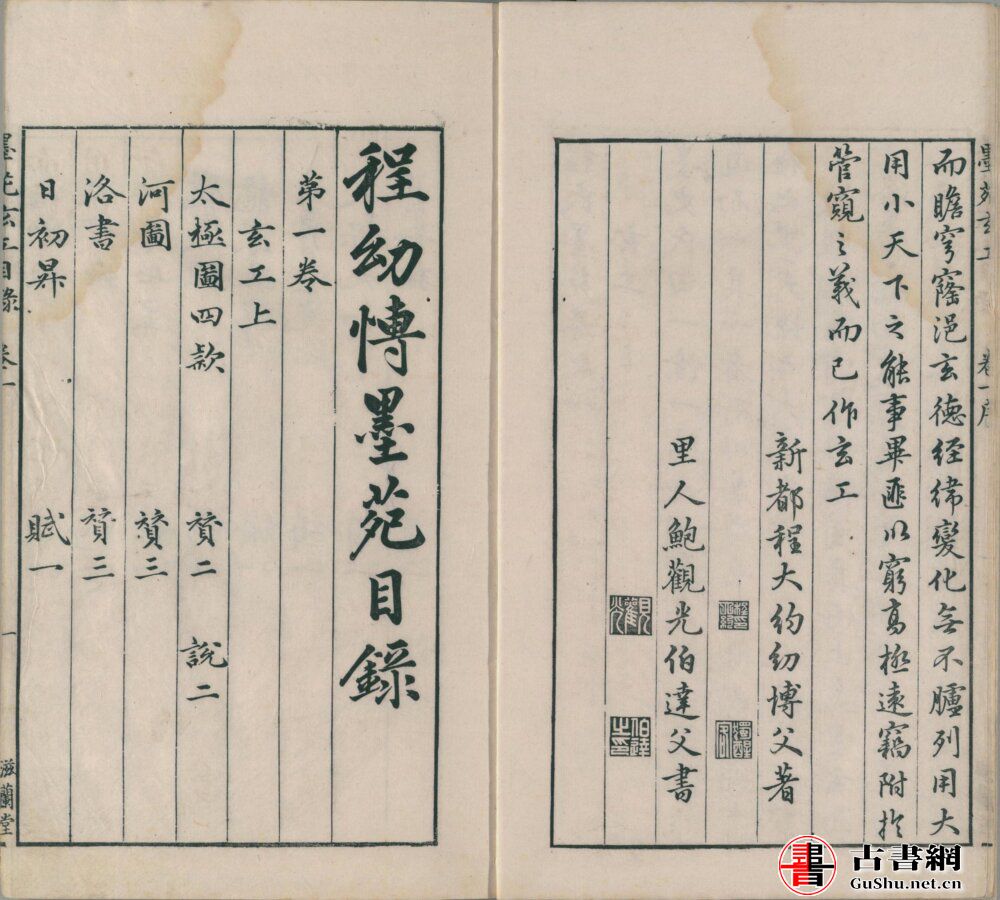 而瞻穹窿浥玄德經緯變化無不臚列用大
用小天下之能事畢匪以窮高極遠竊附於
管窺之義而已作玄工
新都程大約幼博父著
里人鮑觀光伯達父書
觀光
伯達之印
程幼博墨苑目錄
第一卷
玄工上
太極圖四款 贊二 說二
河圖 贊三
洛書 贊三
日初昇 賦一
墨苑玄工目錄 卷一
一
滋蘭堂
墨苑玄工
卷一序
書
古書網
GuShu.net.cn